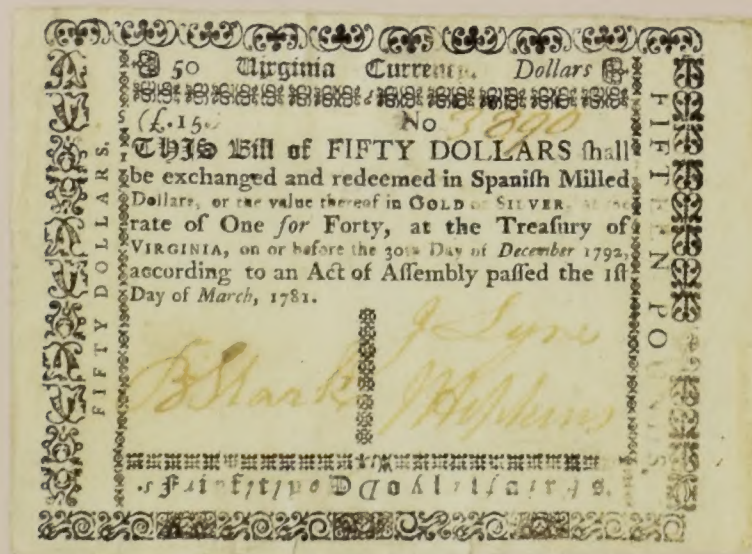 50 Virginia Currency. Dollars
(£.15.) No 3890
THIS Bill of FIFTY DOLLARS ſhall
be exchanged and redeemed in Spaniſh Milled
Dollars, or the value thereof in GOLD or SILVER, at the
rate of One for Forty, at the Treaſury of
VIRGINIA, on or before the 30th Day of December 1792,
according to an Act of Aſſembly paſſed the 1ſt
Day of March, 1781.
B Stark
J Lyne
J Hopkins
FIFTY DOLLARS.
FIFTEEN POUNDS,